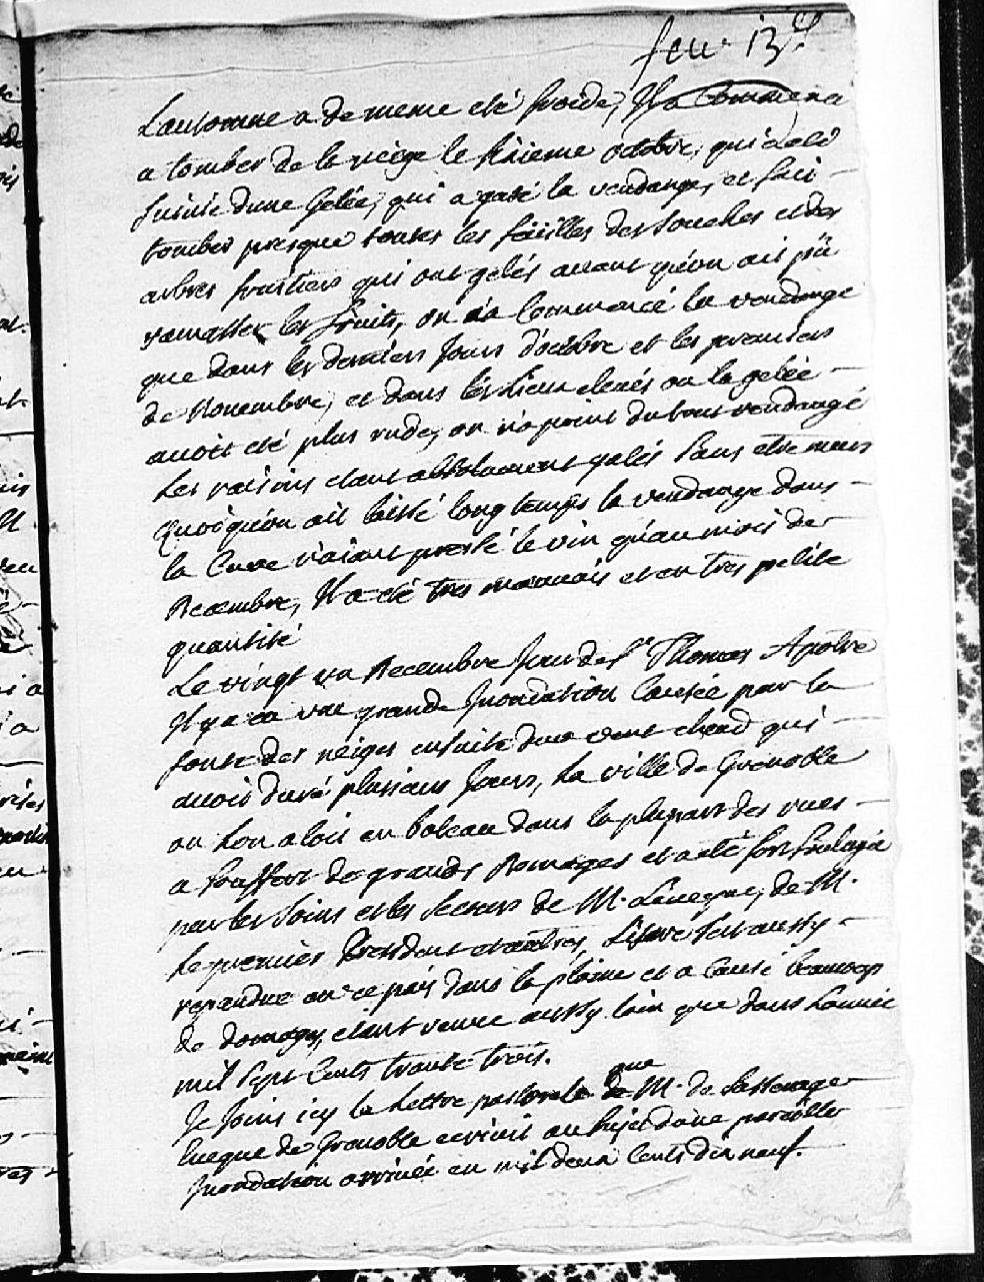 feuil. 13.e
Lautomne a de meme eté froide, Il a Commencé
a tomber de la neige le sixieme octobre, qui a eté
suivie dune Gelée, qui a gaté la vendange, et fait
tomber presque toutes les feüilles des souches et des
arbres fruitiers qui ont gelés avant quéon ait pû
ramasser les fruits, on n'a Commencé la vendange
que dans les derniers Jours d'octobre et les premiers
de Novembre, et dans les Lieux elevés ou la gelée
avoit eté plus rude, on n'a point du tout vendangé
Les raisins etant absolument gelés sans etre meurs
Quoiquéon ait laissé long temps la vendange dans
la Cuve n'aiant pressé le vin qu'au mois de
Decembre, Il a eté tres mauvais et en tres petite
quantité
Le vingt un Decembre Jour de St Thomas Apôtre
Il y a eu une grande Inondation Causée par la
fonte des neiges ensuite dun vent chaud qui
avoit duré plusieurs Jours, La ville de Grenoble
ou Lon aloit en bateau dans la plupart des rues
a souffert de grands Domages et a eté fort soulagée
par les soins et les secours de M. Leveque, de M.
Le premier President et autres, Lisere sest aussy
repandue en ce païs dans la plaine et a Causé beaucoup
de domages, etant venue aussy loin que dans Lannée
mil sept Cents trante trois.
Je Joins icy la Lettre pastorale que M. de Sassenage
Eveque de Grenoble ecrivit au sujet dune pareille
Inondation arrivée en mil deux Cents dix neuf.